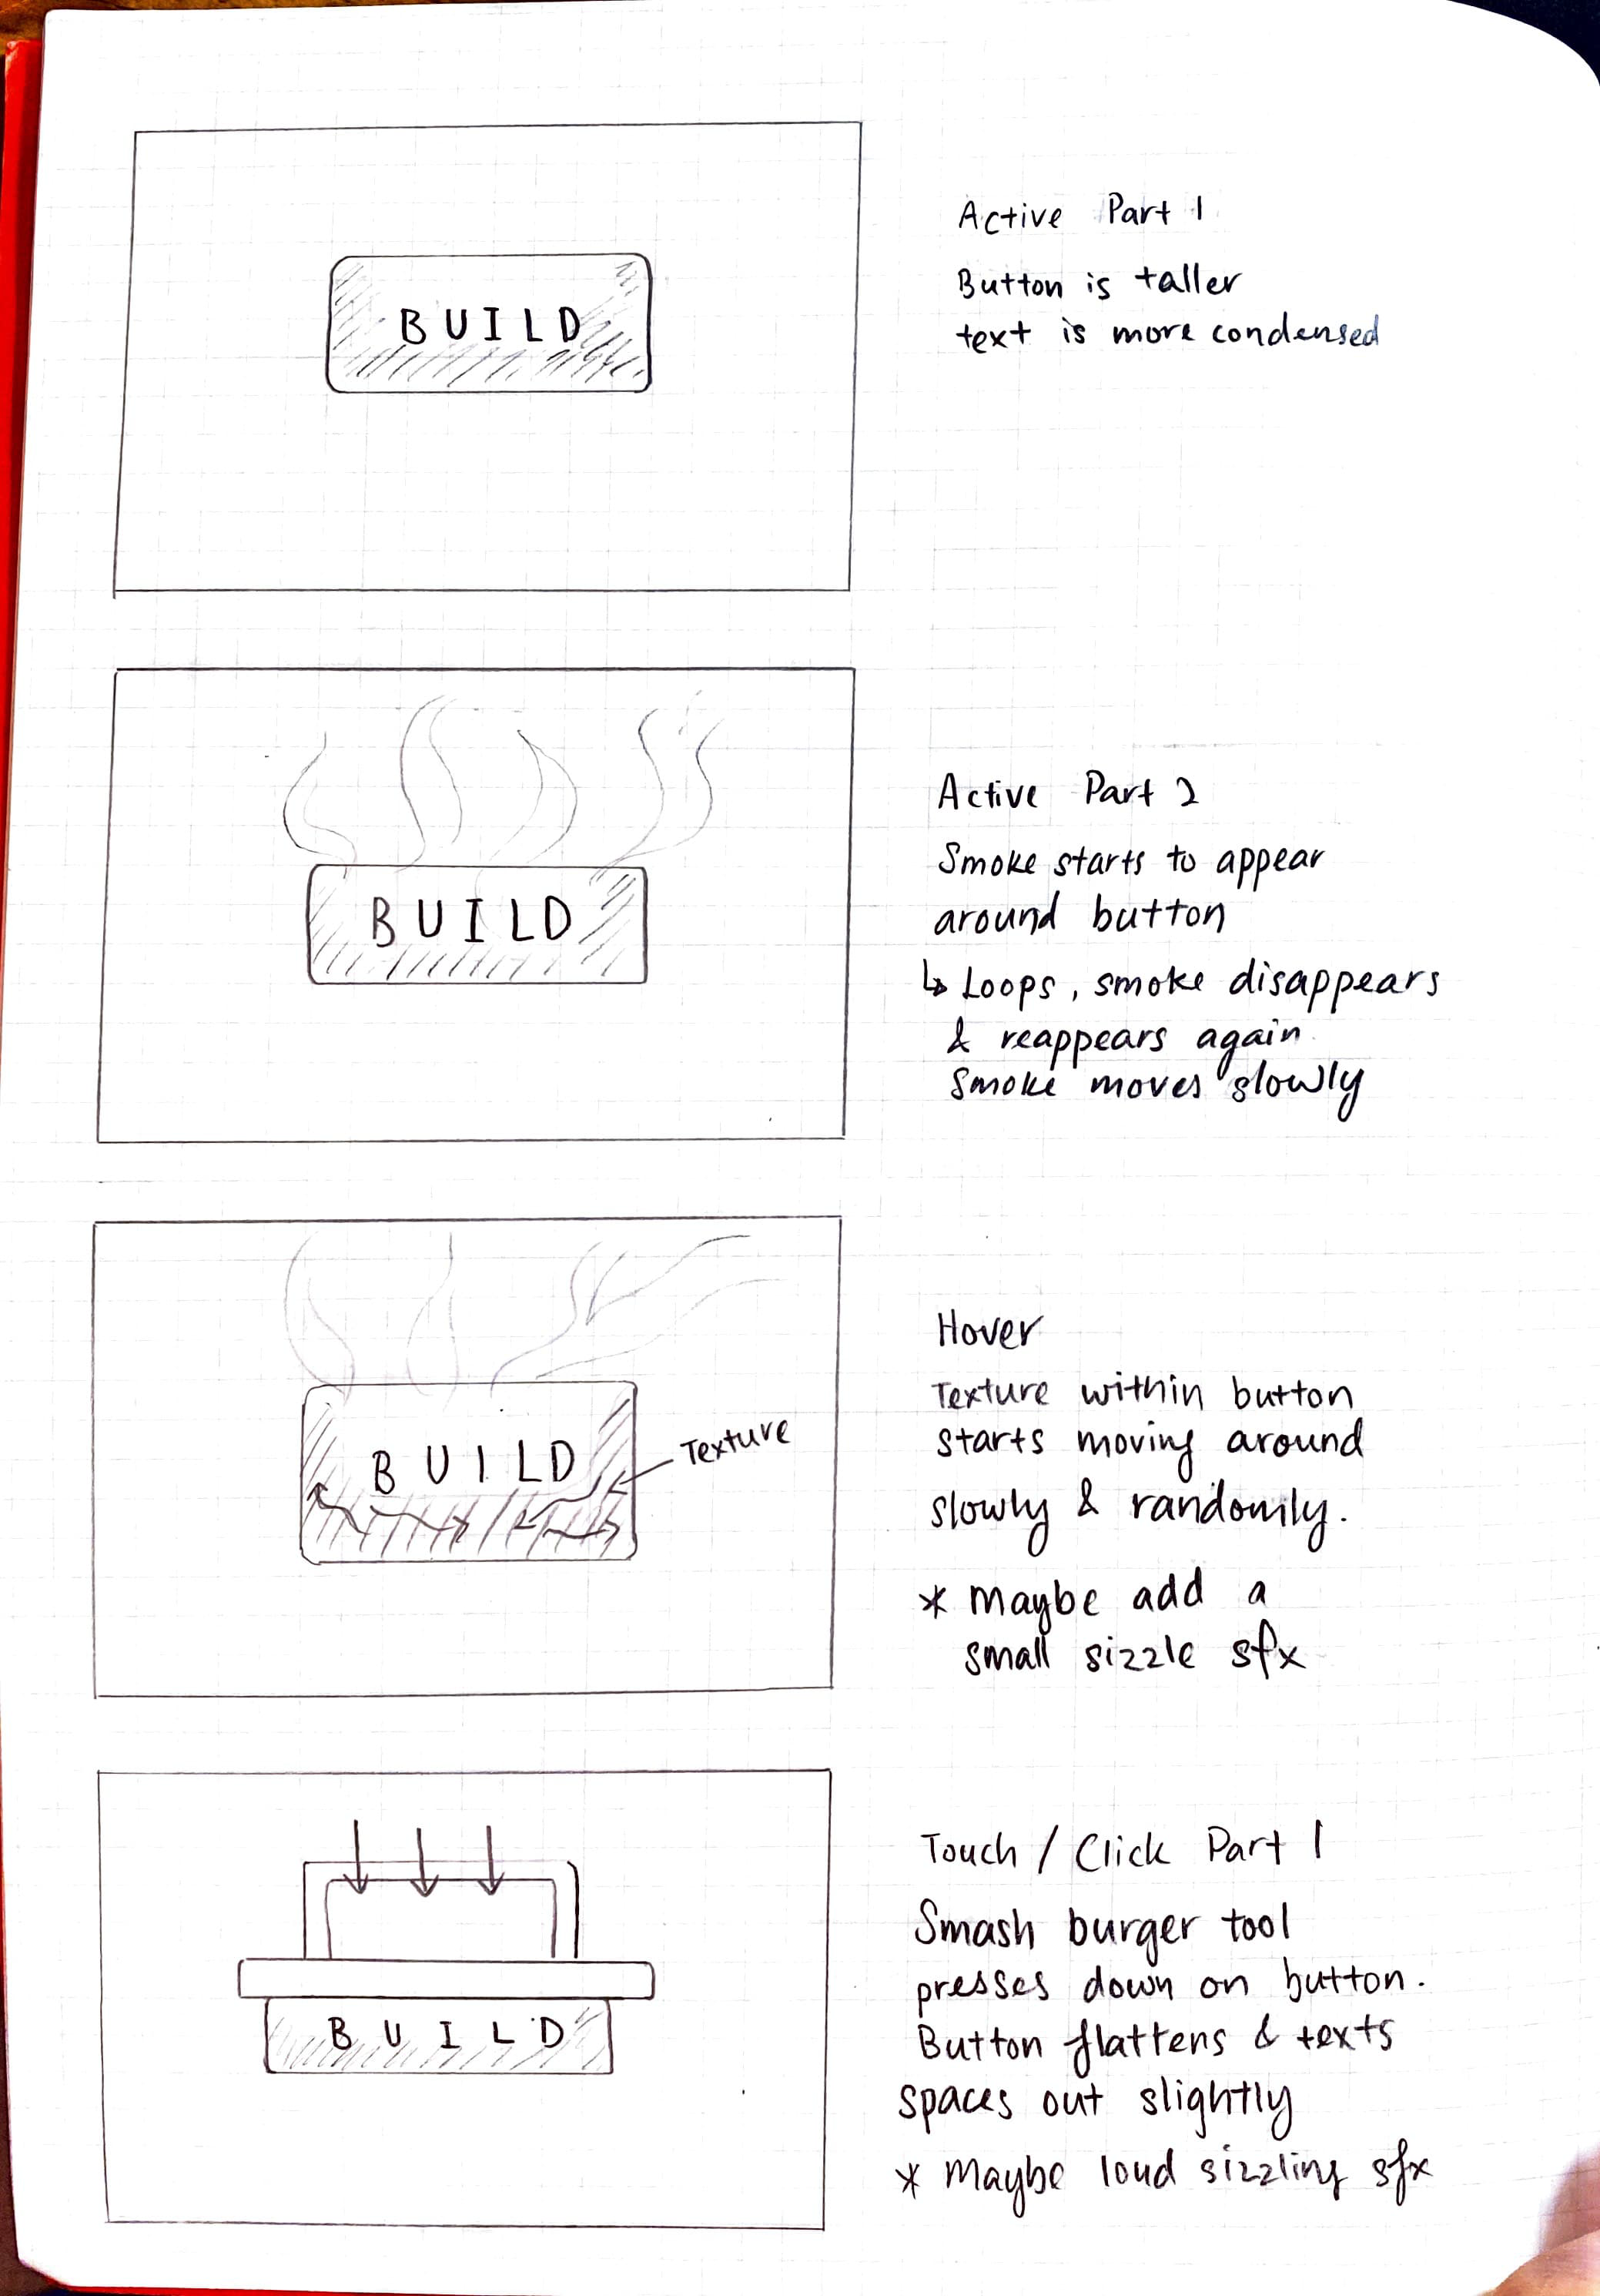 BUILD
Active Part 1
Button is taller
text is more condensed
BUILD
Active Part 2
Smoke starts to appear
around button
↳ Loops, smoke disappears
& reappears again
Smoke moves slowly
BUILD
Texture
Hover
Texture within button
starts moving around
slowly & randomly.
* Maybe add a
small sizzle sfx
BUILD
Touch / Click Part 1
Smash burger tool
presses down on button.
Button flattens & texts
spaces out slightly
* Maybe loud sizzling sfx